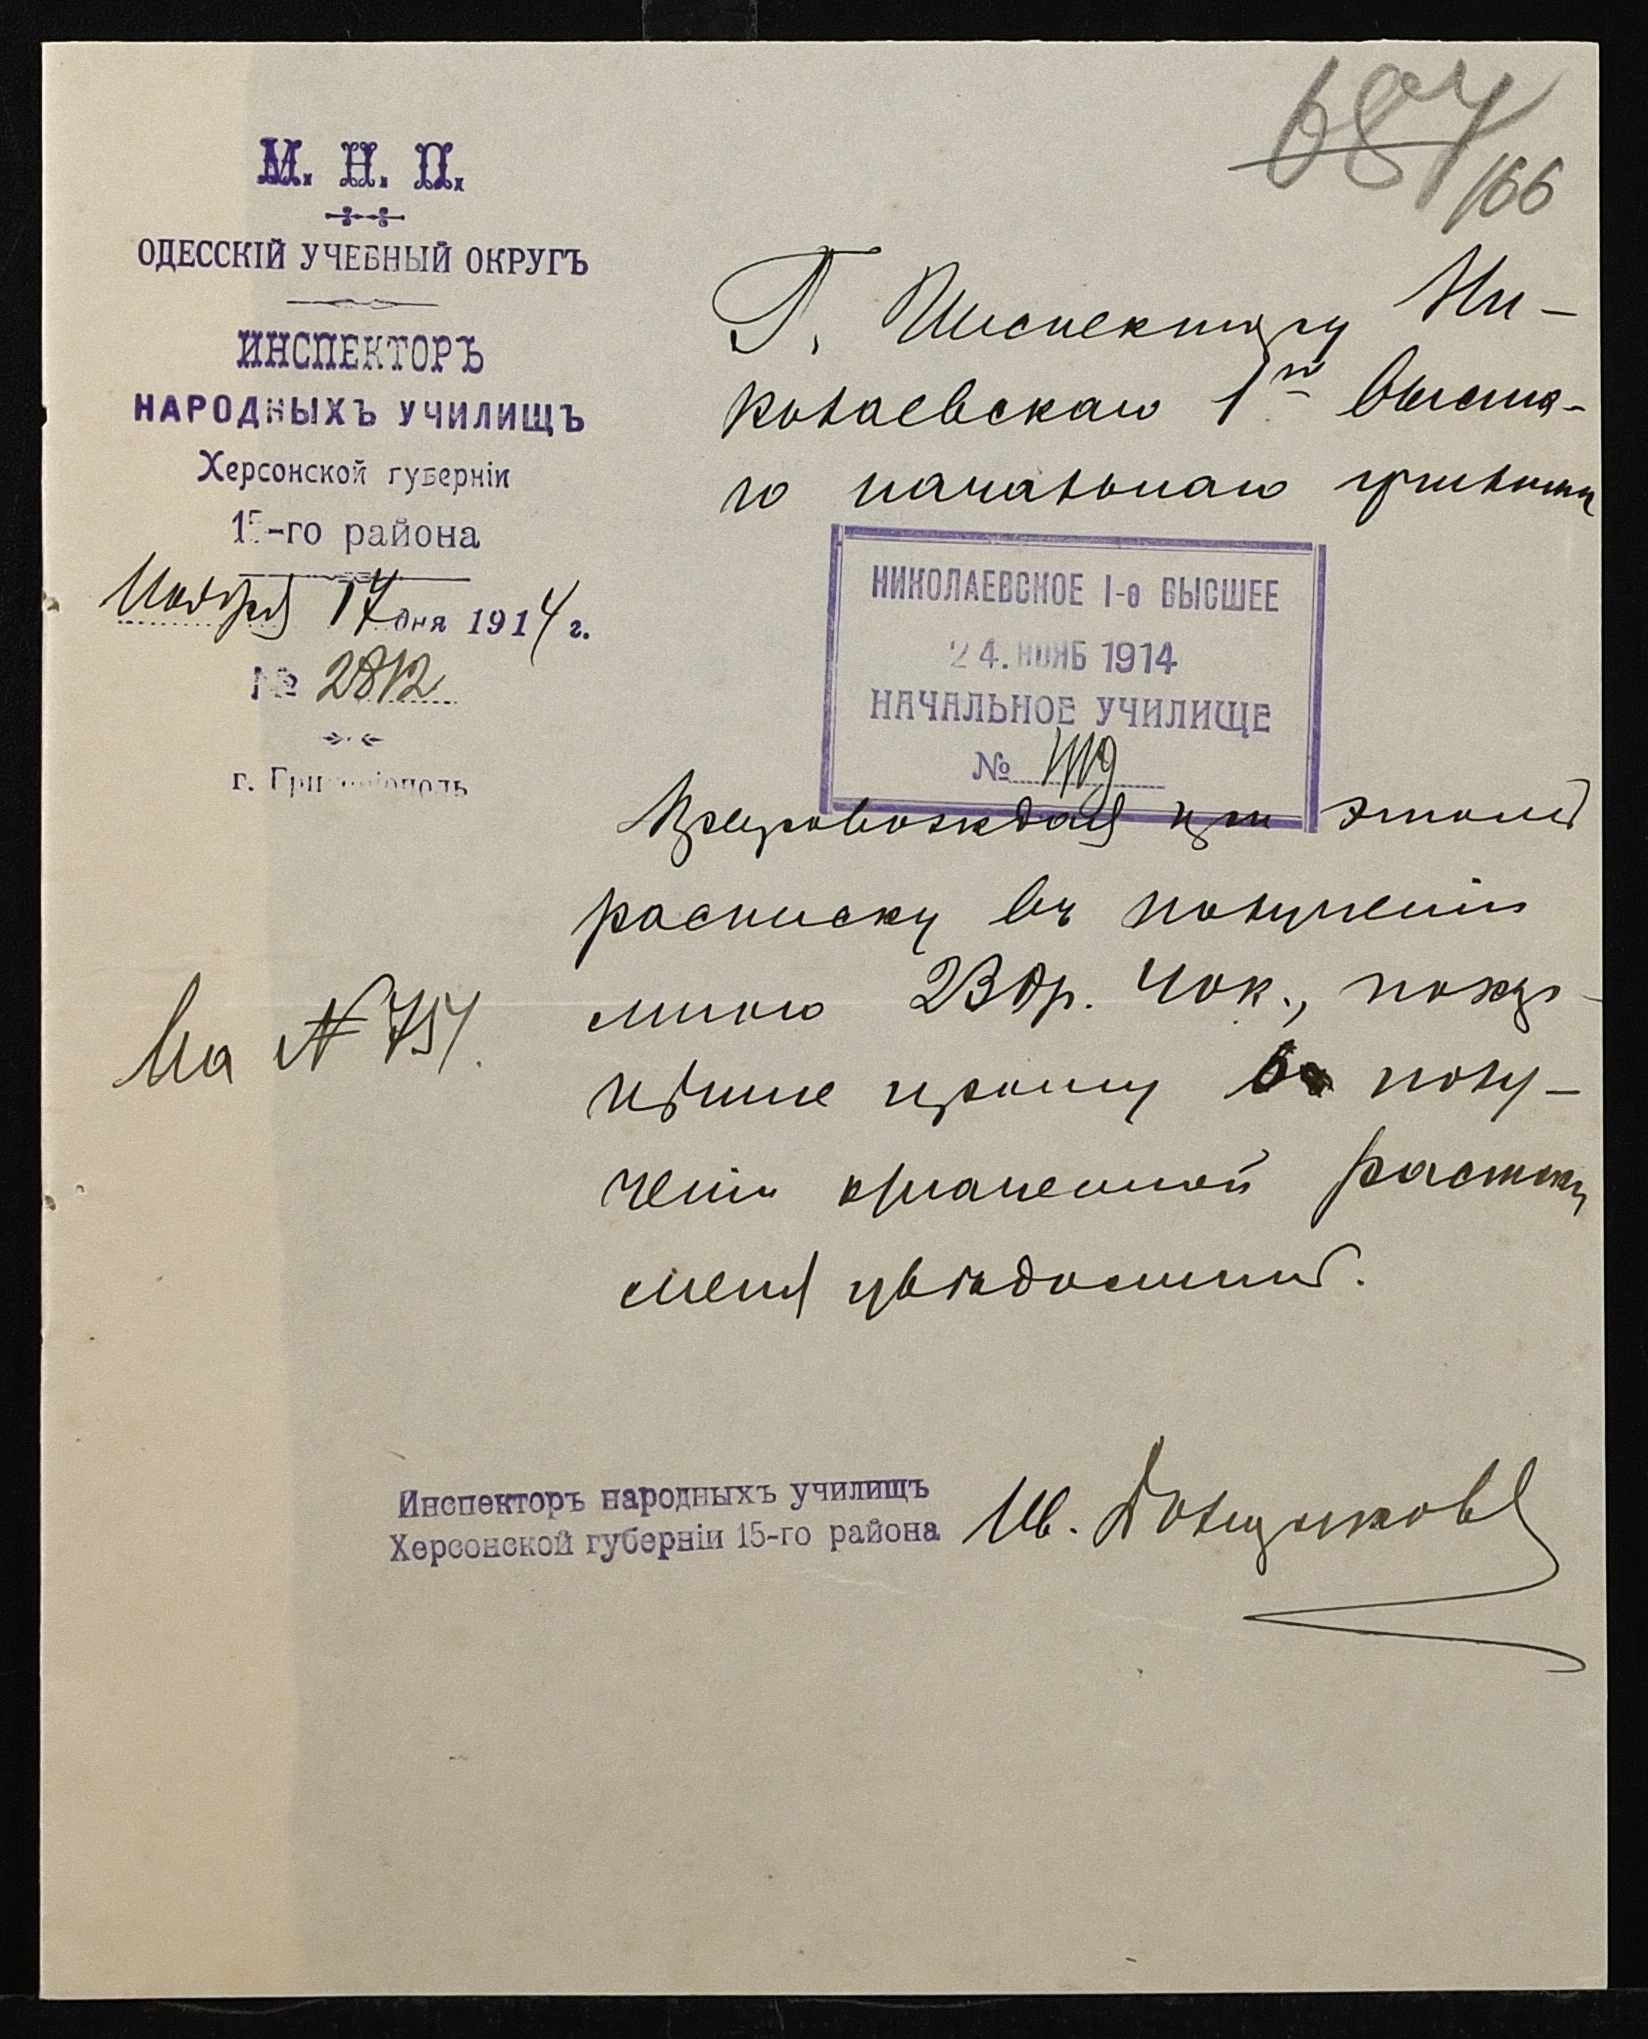 687
166
М. Н. П.
ОДЕССКІЙ УЧЕБНЫЙ ОКРУГЪ
ИНСПЕКТОРЪ
НАРОДНЫХЪ УЧИЛИЩЪ
Херсонской губерніи
15-го района
Ноября 17 дня 1914 г.
№ 2812
г. Григоріополь
Г. Инспектору Ни-
колаевскаго 1го Высша-
го начальнаго училища
НИКОЛАЕВСКОЕ I-е ВЫСШЕЕ
24. НОЯБ 1914
НАЧАЛЬНОЕ УЧИЛИЩЕ
№
Препровождая при этомъ
расписку въ полученіи
мною 23 р. 40к., покор-
нѣйше прошу о полу-
ченіи означенной расписки
меня увѣдомить.
На № 757.
Инспекторъ народныхъ училищъ
Херсонской губерніи 15-го района
Ив.